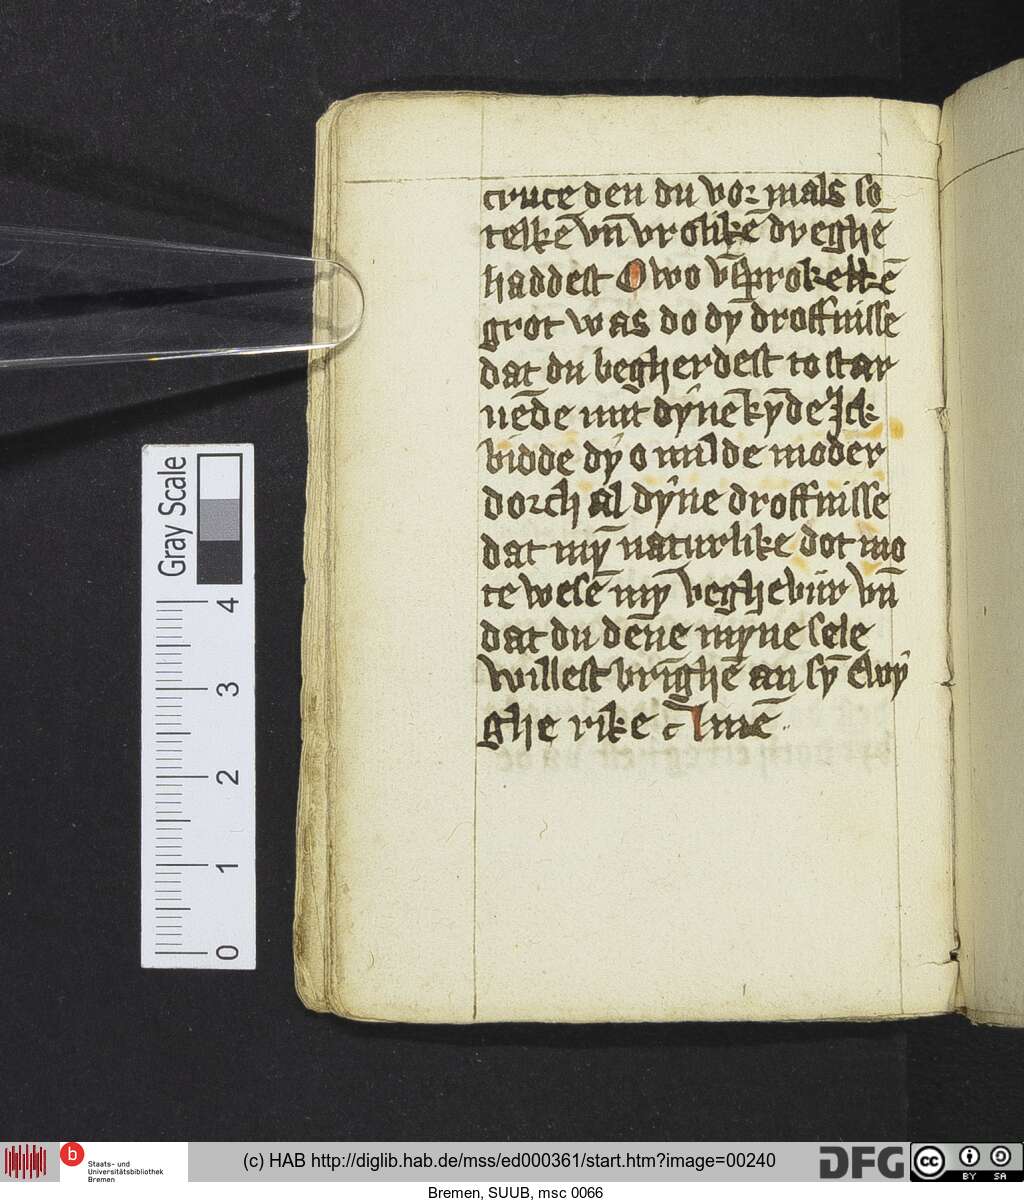 cruce den du vor mals so
telkē vn̄ vrolikē dreghē
haddest O wo vn̄sprokelkē
grot was do dȳ droffnisse
dat du begherdest to star
uēde mit dẏne kȳde Jck
bidde dẏ o milde moder
dorch al dẏne droffnisse
dat mȳ naturlike dot mo
te wesē mȳ veghevur vn̄
dat du dēne myne sele
willest brīghē an sȳ Ewẏ
ghe rike c̄ Amē
Gray Scale
4
3
2
1
0
b
Staats- und
Universitätsbibliothek
Bremen
(c) HAB http://diglib.hab.de/mss/ed000361/start.htm?image=00240
DFG
cc
BY SA
Bremen, SUUB, msc 0066